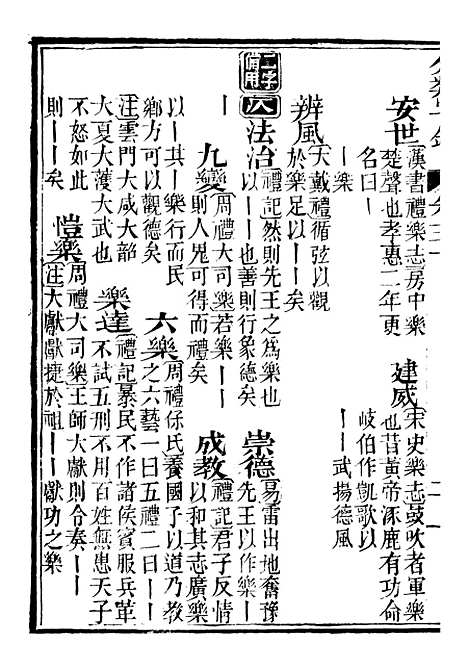 安世 漢書禮樂志房中樂
楚聲也孝惠二年更
名曰丨
丨樂
建威 宋史樂志鼓吹者軍樂
也昔黃帝涿鹿有功命
岐伯作凱歌以
丨丨武揚德風
二字備用
八
辨風 大戴禮循弦以觀
於樂足以丨丨矣
法治 禮記然則先王之為樂也
以丨丨也善則行象德矣
崇德 易雷出地奮豫
先王以作樂丨丨
九變 周禮大司樂若樂丨丨
則人鬼可得而禮矣
成教 禮記君子反情
以和其志廣樂
以丨其丨樂行而民
鄉方可以觀德矣
六樂 周禮保氏養國子以道乃教
之六藝一曰五禮二曰丨丨
注雲門大咸大韶
大夏大濩大武也
樂達 禮記暴民不作諸侯賓服兵革
不試五刑不用百姓無患天子
不怒如此
則丨丨矣
愷樂 周禮大司樂王師大獻則令奏丨丨
注大獻獻捷於祖丨丨獻功之樂